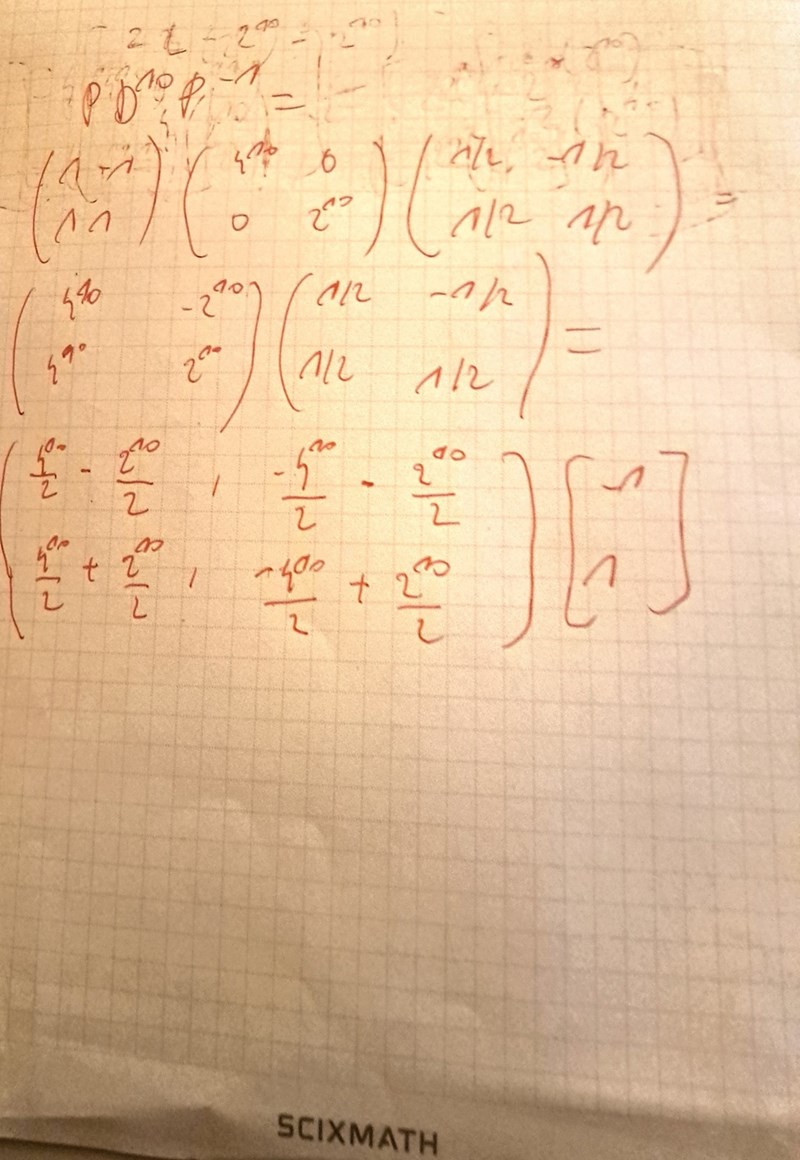 P D^10 P^-1 =
( 1 -1 ) ( 4^10 0 ) ( 1/2 -1/2 ) =
( 1 1 ) ( 0 2^10 ) ( 1/2 1/2 )
( 4^10 -2^10 ) ( 1/2 -1/2 ) =
( 4^10 2^10 ) ( 1/2 1/2 )
( 4^10/2 - 2^10/2 , -4^10/2 - 2^10/2 ) [ -1 ]
( 4^10/2 + 2^10/2 , -4^10/2 + 2^10/2 ) [ 1 ]
SCIXMATH